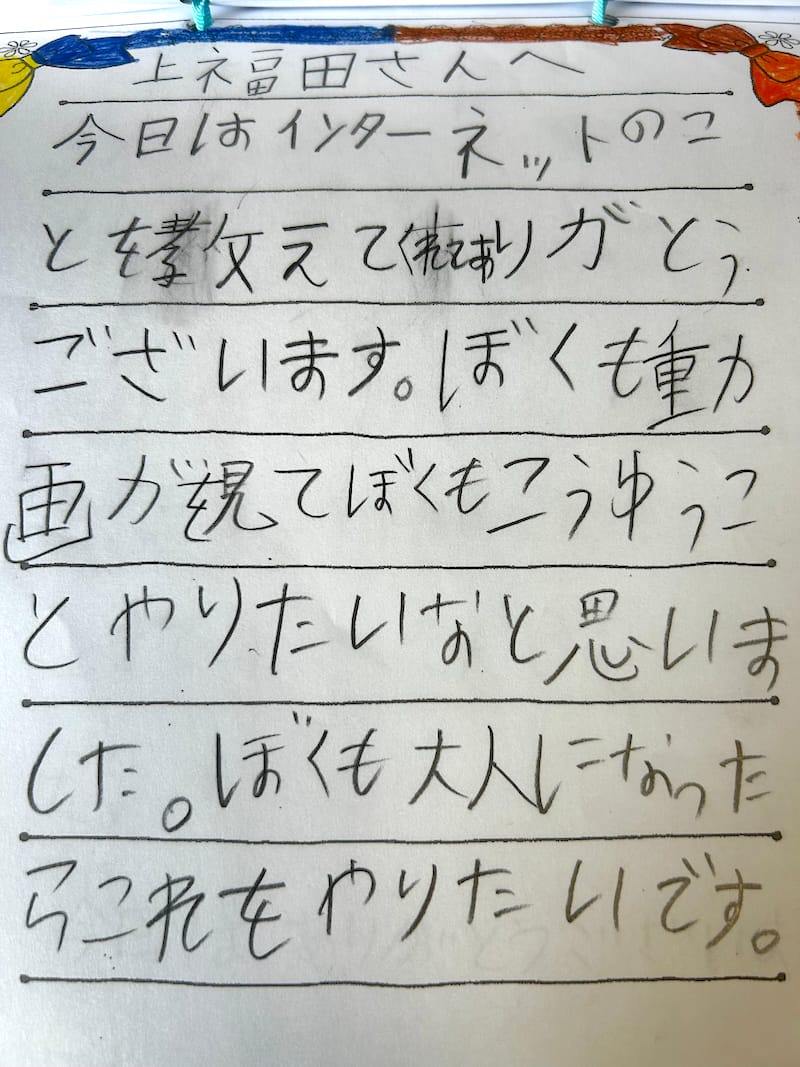 上ネ福田さんへ
今日はインターネットのこ
とを教えてくれてありがとう
ございます。ぼくも動
画がを見てぼくもこうゆうこ
とやりたいなと思いま
した。ぼくも大人になった
らこれをやりたいです。